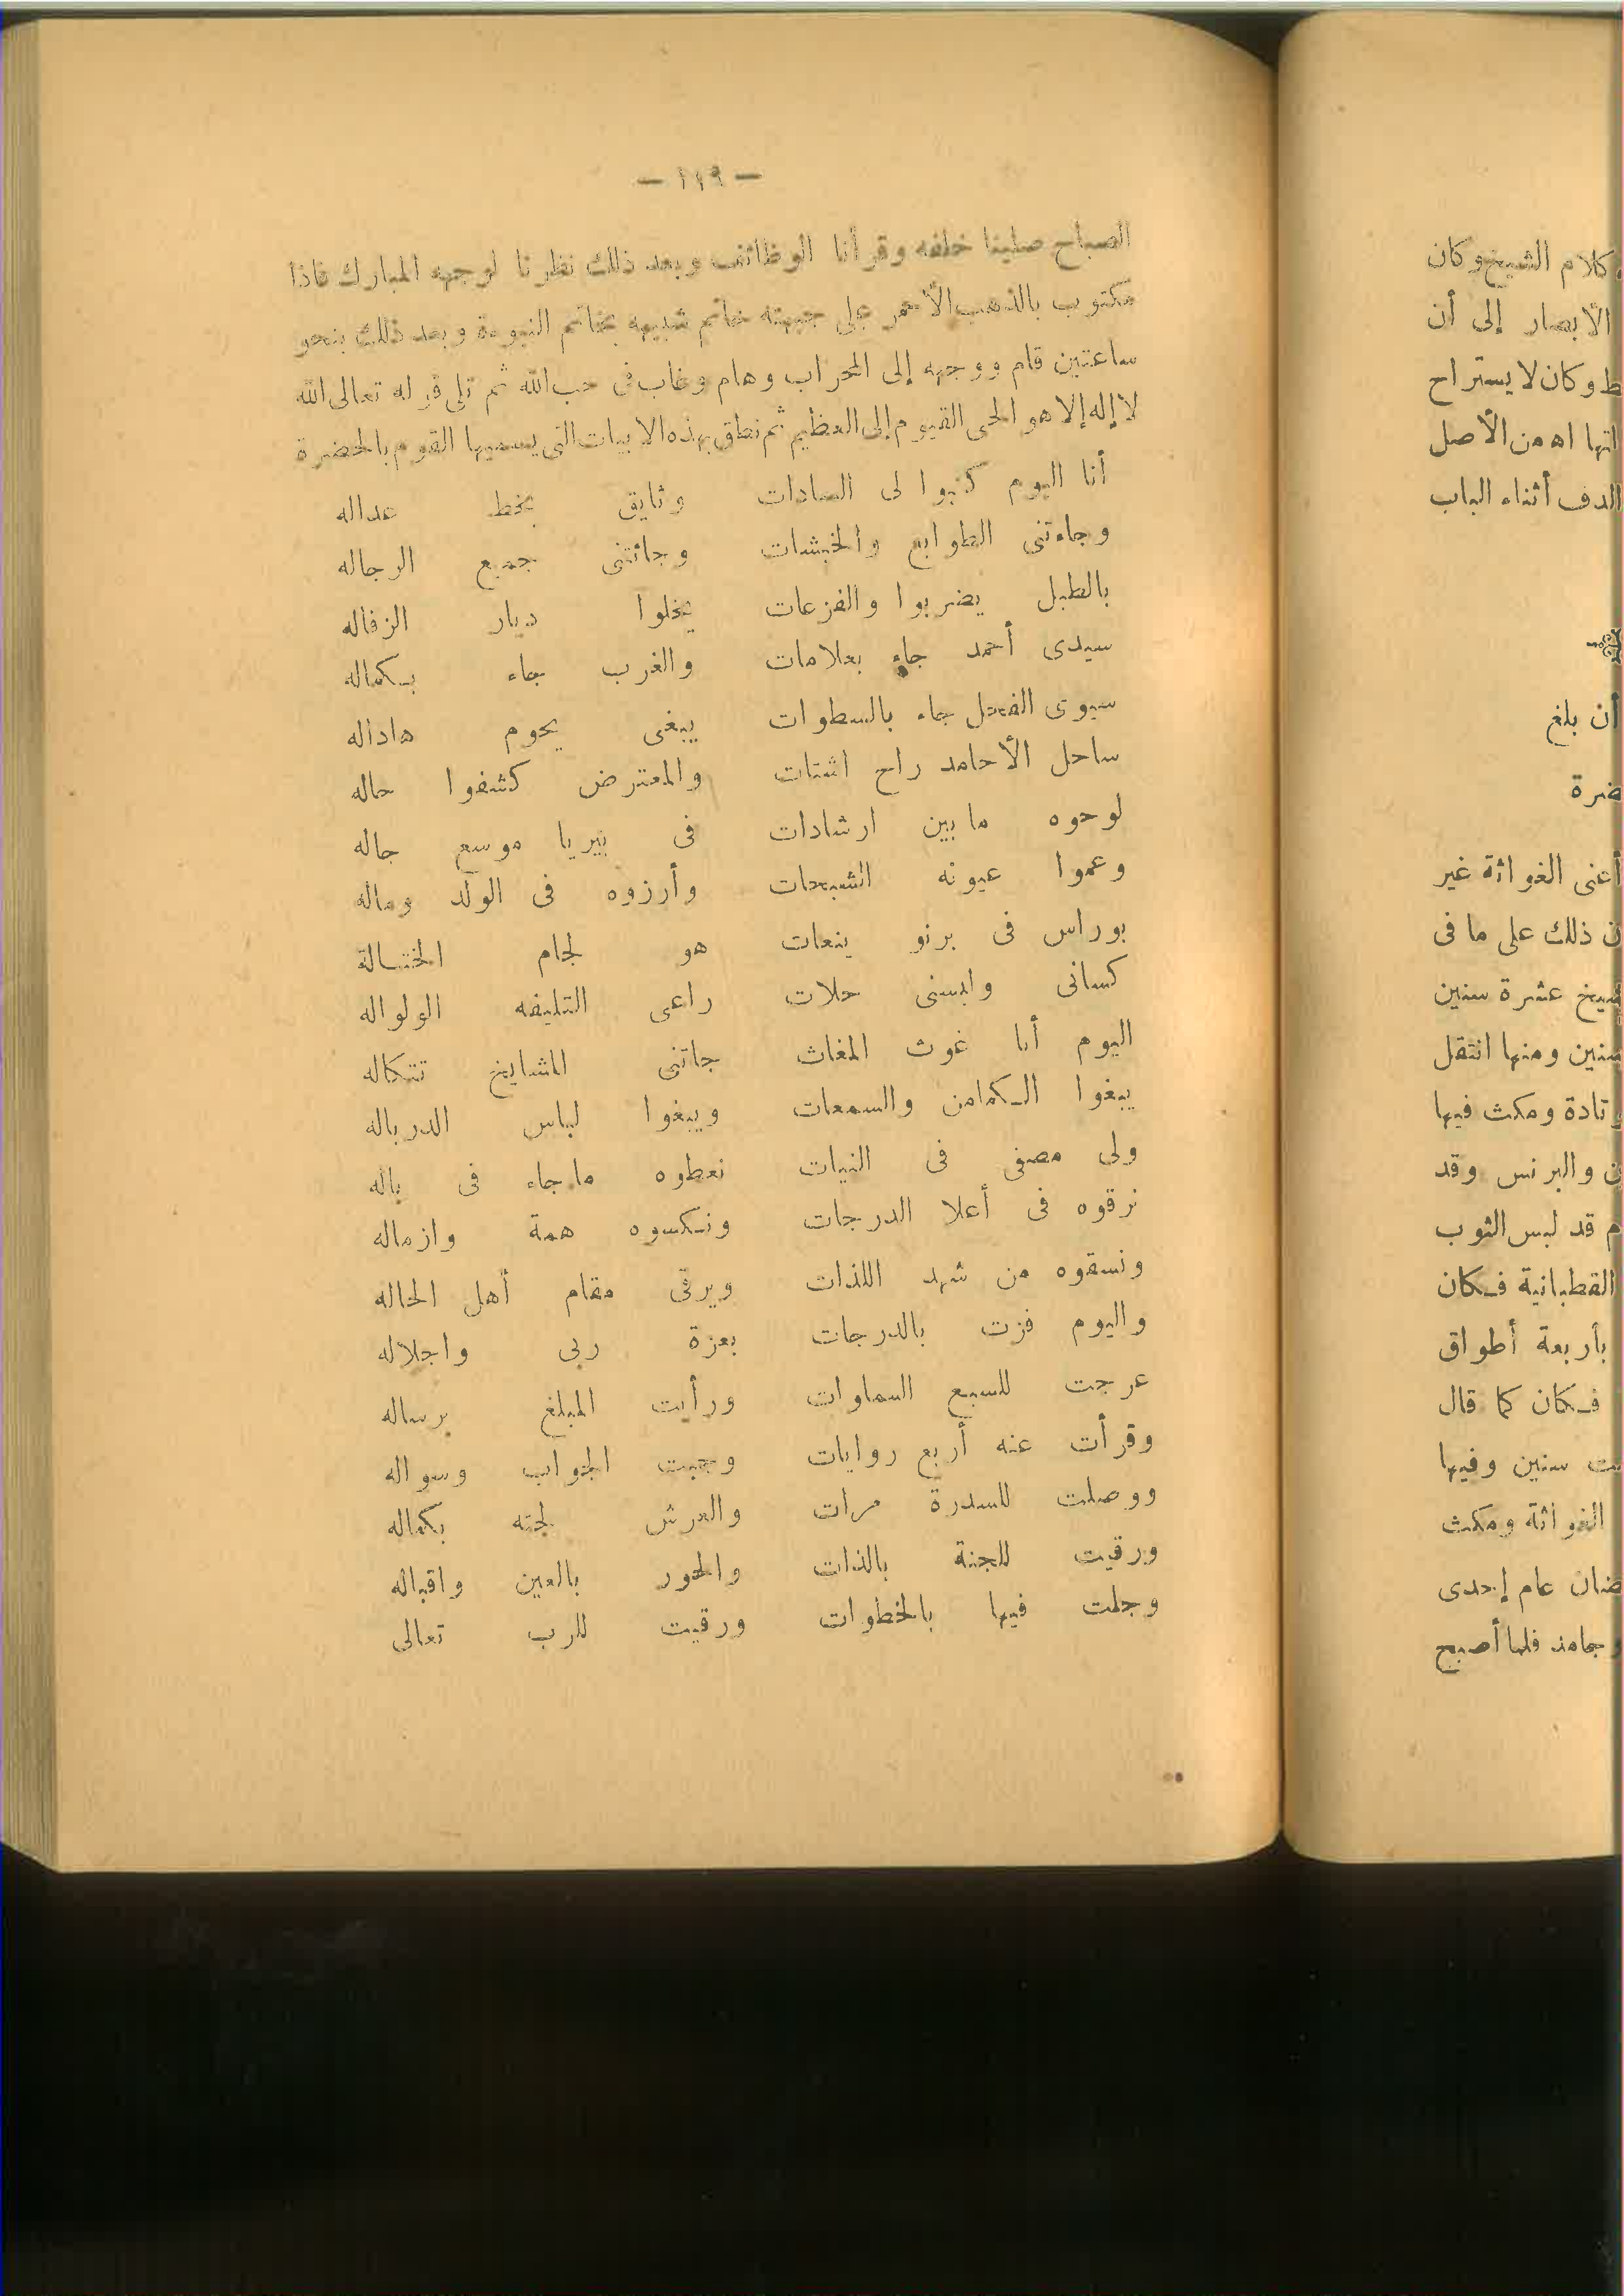 كلام الشيخ وكان
الأبصار إلى أن
ط وكان لا يستراح
اه من الأصل
الدف أثناء الباب
أن بلغ
ضرة
أعنى الغواثة غير
ذلك على ما فى
عشرة سنين
سنين ومنها انتقل
تادة ومكث فيها
والبرنس وقد
قد لبس الثوب
القطبانية فكان
بأربعة أطواق
فكان كما قال
سنين وفيها
الغواثة ومكث
عام إحدى
فلما أصبح
— ١١٩ —
الصباح صلينا خلفه وقرأنا الوظائف وبعد ذلك نظرنا لوجهه المبارك فاذا
مكتوب بالذهب الأحمر على جبهته خاتم شبيهه بخاتم النبوءة وبعد ذلك بنحو
ساعتين قام ووجهه إلى المحراب وهام وغاب فى حب الله ثم تلى قوله تعالى الله
لا إله إلا هو الحى القيوم إلى العظيم ثم نطق بهذه الابيات التى يسميها القوم بالحضرة
أنا اليوم كتبوا لى السادات وثايق بخط عداله
وجاءتنى الطوابع والخبشات وجائتنى جميع الرجاله
بالطبل يضربوا والفزعات يخلوا ديار الزفاله
سيدى أحمد جاء بعلامات والغرب جاء بكماله
سيوى الفحل جاء بالسطوات يبغى يحوم هاداله
ساحل الأحامد راح اشتات والمعترض كشفوا حاله
لوحوه مابين ارشادات فى بيريا موسع جاله
وعموا عيونه الشبحات وأرزوه فى الولد وماله
بوراس فى برنو ينعات هو لجام الختالة
كسانى ولبسنى حلات راعى التليفه الولواله
اليوم أنا غوث المغاث جاتنى المشايخ تتكاله
يبغوا الكمامن والسمعات ويبغوا لباس الدرباله
ولى مصفى فى النيات نعطوه ماجاء فى باله
نرقوه فى أعلا الدرجات ونكسوه همة وازماله
ونسقوه من شهد اللذات ويرقى مقام أهل الحاله
واليوم فزت بالدرجات بعزة ربى واجلاله
عرجت للسبع السماوات ورأيت المبلغ برساله
وقرأت عنه أربع روايات وجبت الجواب وسواله
ووصلت للسدرة مرات والعرش لجته بكماله
ورقيت للجنة بالذات والحور بالعين واقباله
وجلت فيها بالخطوات ورقيت للرب تعالى